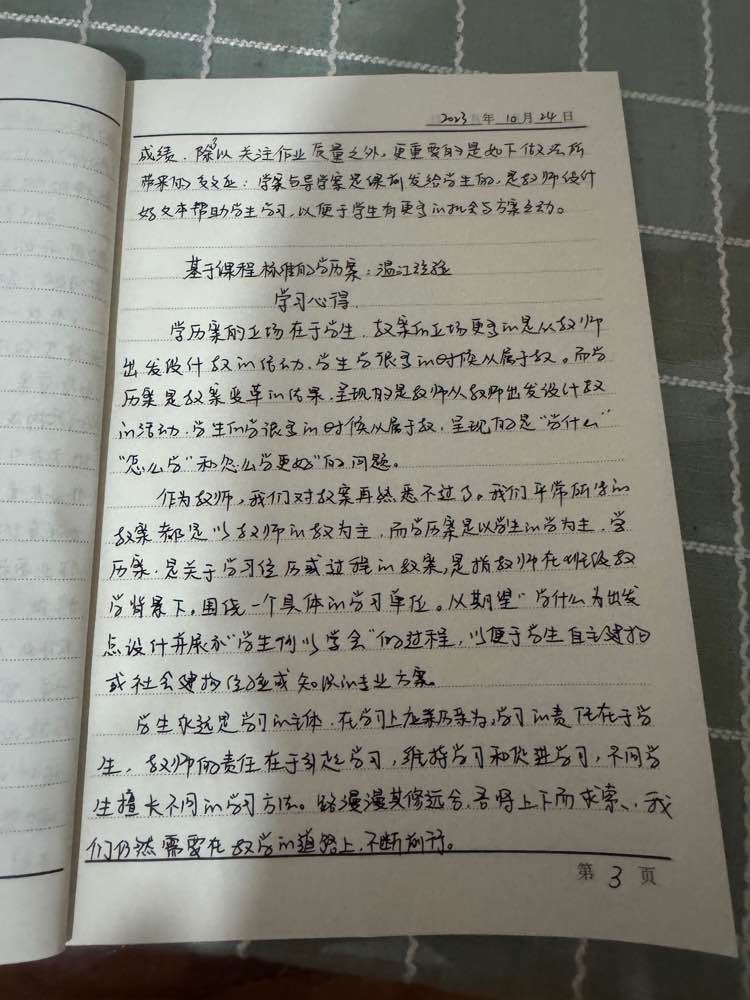 2023年10月24日
成绩.除了以关注作业质量之外,更重要的是如下做法所
带来的效应:学案与导学案是课前发给学生的,是教师设计
好文本帮助学生学习,以便于学生有更多的机会与方案互动。
基于课程标准的学历案:温江经验
学习心得
学历案的立场在于学生.教案的立场更多的是从教师
出发设计教的活动.学生学很多的时候从属于教。而学
历案是教案变革的结果.呈现的是教师从教师出发设计教
的活动.学生的学很多的时候从属于教,呈现的是“学什么”
“怎么学”和怎么学更好”的问题。
作为教师,我们对教案再熟悉不过了。我们平常所写的
教案都是以教师的教为主,而学历案是以学生的学为主.学
历案.是关于学习经历或过程的教案,是指教师在班级教
学背景下.围绕一个具体的学习单位。从期望“学什么为出发
点设计并展示“学生何以学会”的过程,以便于学生自主建构
或社会建构经验或知识的专业方案。
学生永远是学习的主体.在学习上应亲历亲为,学习的责任在于学
生.教师的责任在于引起学习,维持学习和促进学习,不同学
生擅长不同的学习方法。路漫漫其修远兮.吾将上下而求索、.我
们仍然需要在教学的道路上.不断前行。
第3页